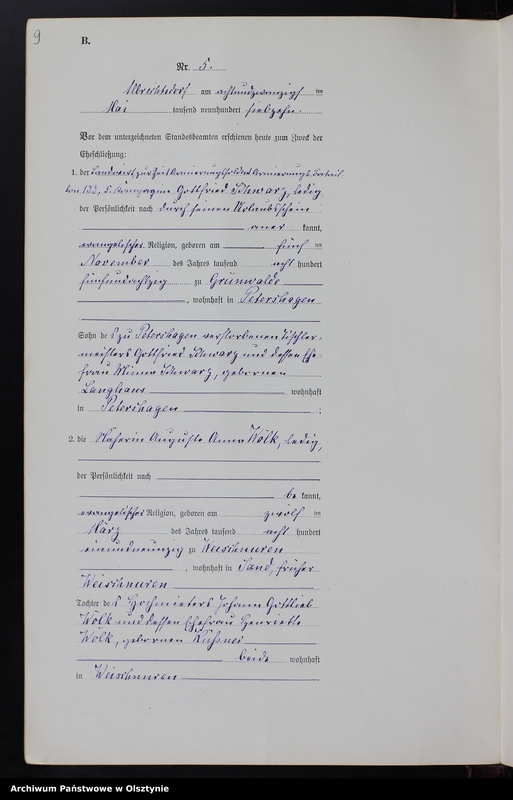 9
B.
Nr. 5.
Albrechtsdorf am achtundzwanzigs ten
Mai tausend neunhundert siebzehn.
Vor dem unterzeichneten Standesbeamten erschienen heute zum Zweck der
Eheschließung:
1. der Landwirt, zur Zeit Armierungssoldat Armierungs-Batail-
lon 132, 5. Kompagnie Gottfried Schwarz, ledig,
der Persönlichkeit nach durch seinen Urlaubsschein
aner kannt,
evangelischer Religion, geboren am fünf ten
November des Jahres tausend acht hundert
fünfundachtzig zu Grünwalde
, wohnhaft in Petershagen
Sohn des zu Petershagen verstorbenen Tischler-
meisters Gottfried Schwarz und dessen Ehe-
frau Minna Schwarz, geborenen
Langhans wohnhaft
in Petershagen ;
2. die Näherin Auguste Anna Wölk, ledig,
der Persönlichkeit nach
be kannt,
evangelischer Religion, geboren am zwölf ten
März des Jahres tausend acht hundert
einundneunzig zu
, wohnhaft in Sand, früher
Weischnuren
Tochter des Hochmieters Johann Gottlieb
Wölk und dessen Ehefrau Henriette
Wölk, geborenen
beide wohnhaft
in Weischnuren
Archiwum Państwowe w Olsztynie